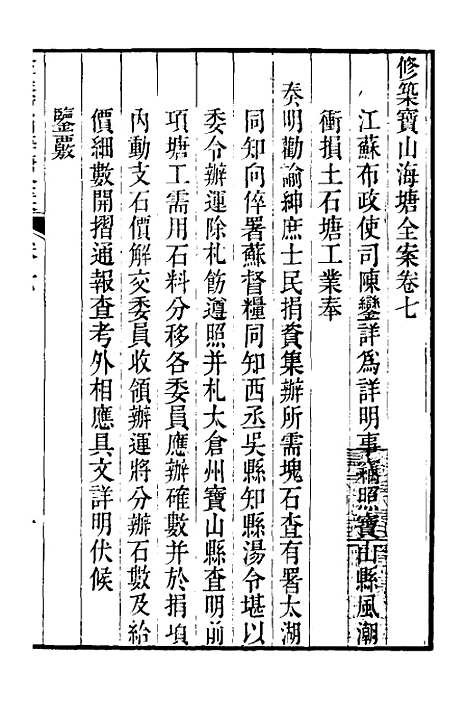 修築寶山海塘全案卷七
江蘇布政使司陳鑾詳爲詳明事竊照寶山縣風潮
衝損土石塘工業奉
奏明勸諭紳庶士民捐資集辦所需塊石查有署太湖
同知向倅署蘇督糧同知西丞吳縣知縣湯令堪以
委令辦運除札飭遵照并札太倉州寶山縣查明前
項塘工需用石料分移各委員應辦確數并於捐項
內動支石價解交委員收領辦運將分辦石數及給
價細數開摺通報查考外相應具文詳明伏候
鑒覈